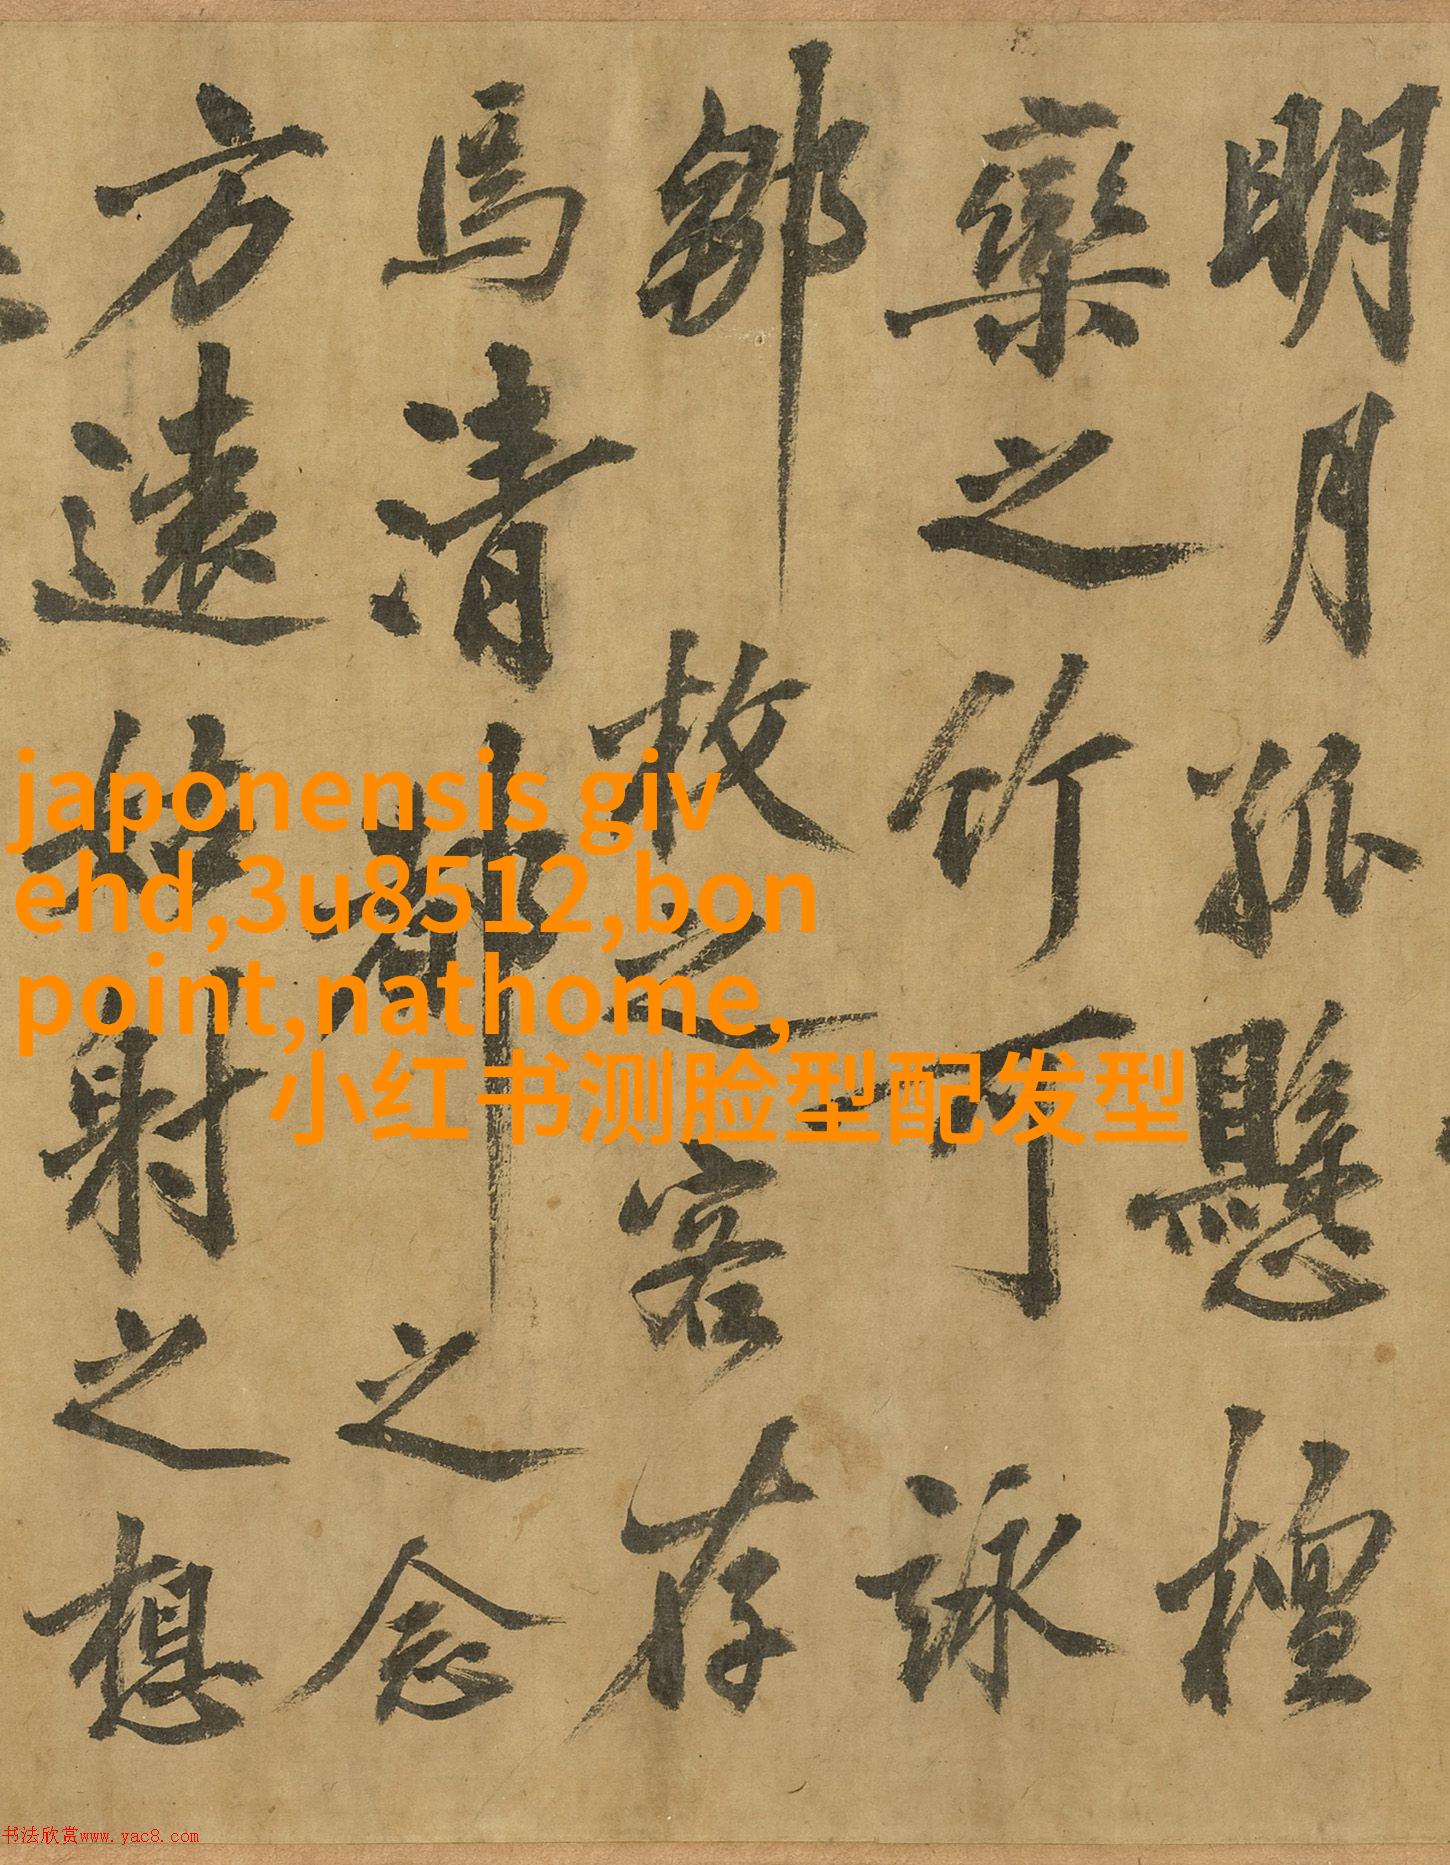 明月孤懸檀
欒之竹可詠
鄒枚之客存
焉清都之念
方遠姑射之想
japonensis giv
ehd,3u8512,bon
point,nathome,
小红书测脸型配发型
书法欣赏www.yac8.com